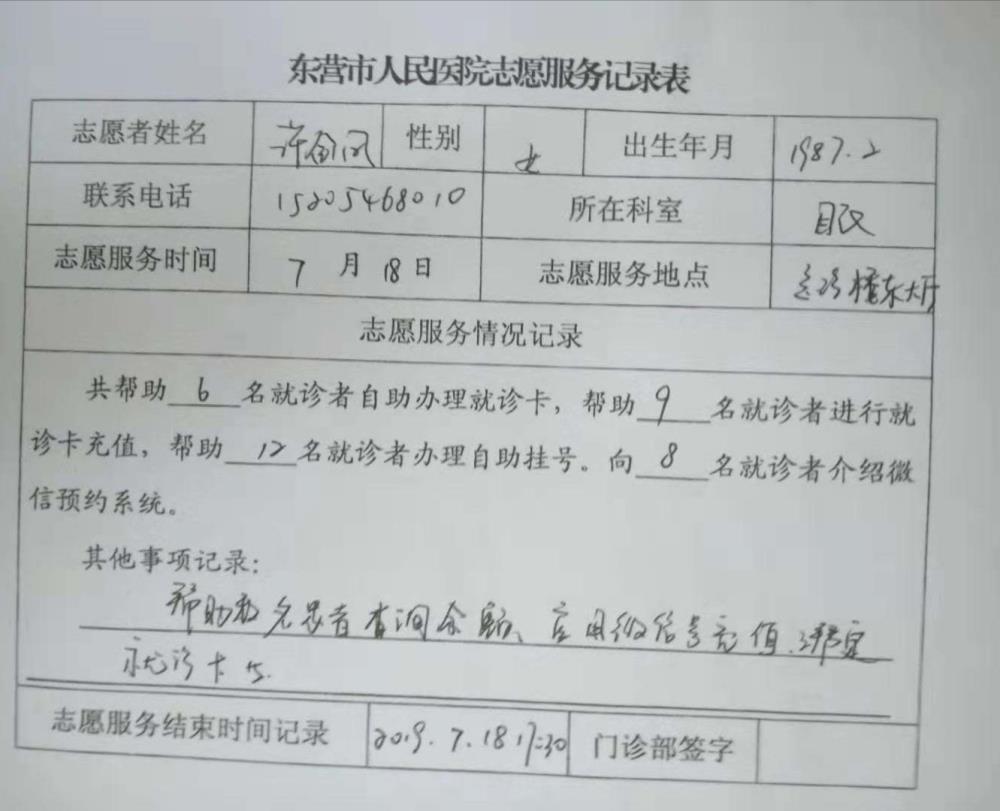 东营市人民医院志愿服务记录表
志愿者姓名 许 凤 性别 女 出生年月 1987.2
联系电话 15205468010 所在科室 眼
志愿服务时间 7 月 18 日 志愿服务地点 楼东大厅
志愿服务情况记录
共帮助 6 名就诊者自助办理就诊卡，帮助 9 名就诊者进行就
诊卡充值，帮助 12 名就诊者办理自助挂号。向 8 名就诊者介绍微
信预约系统。
其他事项记录：
帮助数名患者查询余额、应用微信号充值、绑定
就诊卡等.
志愿服务结束时间记录 2019.7.18 17:30 门诊部签字